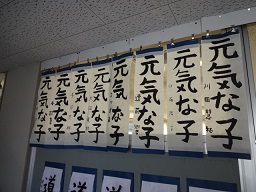 元気な子
元気な子
元気な子
元気な子
元気な子
元気な子
元気な子
道
道
道
道